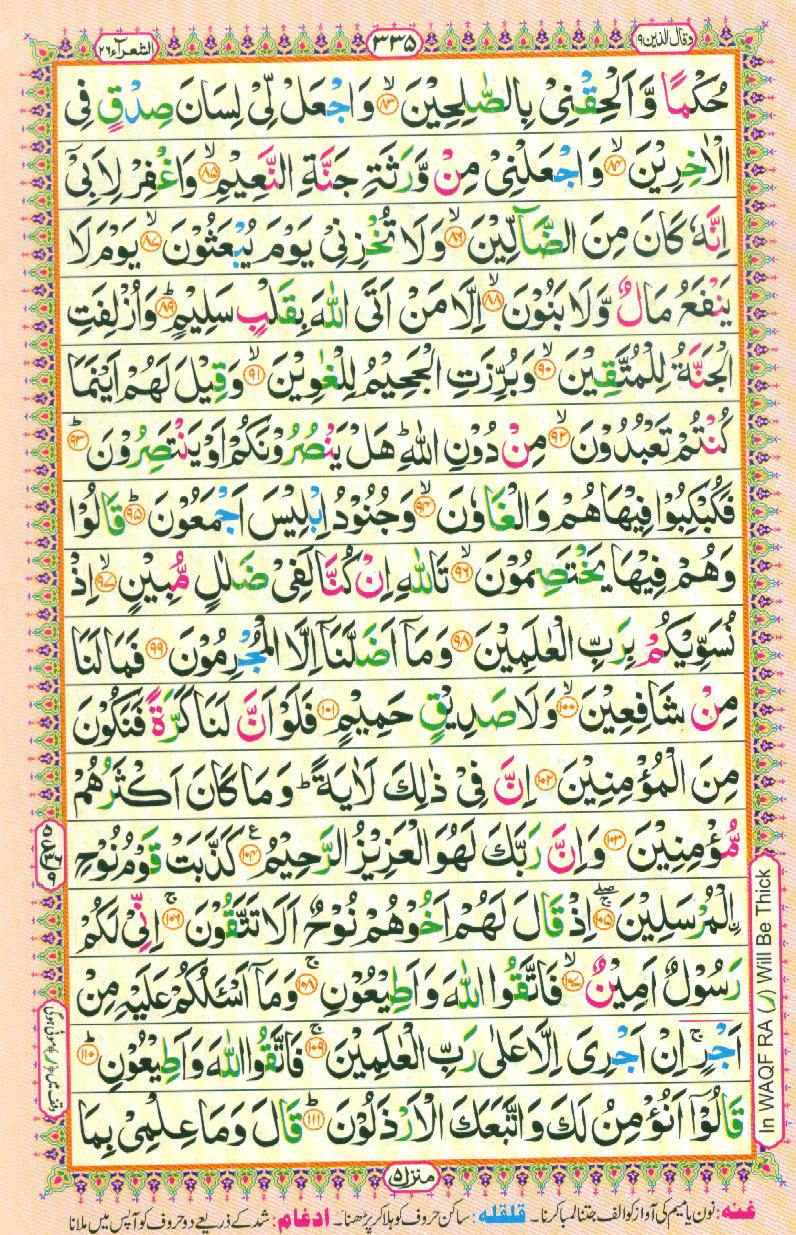 وقال الذین ۱۹
۳۳۵
الشعرآء ۲۶
حُكْمًا وَّ اَلْحِقْنِیْ بِالصّٰلِحِیْنَ ﴿۸۳﴾ وَاجْعَلْ لِّیْ لِسَانَ صِدْقٍ فِی
الْاٰخِرِیْنَ ﴿۸۴﴾ وَاجْعَلْنِیْ مِنْ وَّرَثَةِ جَنَّةِ النَّعِیْمِ ﴿۸۵﴾ وَاغْفِرْ لِاَبِیْۤ
اِنَّهٗ كَانَ مِنَ الضَّآلِّیْنَ ﴿۸۶﴾ وَلَا تُخْزِنِیْ یَوْمَ یُبْعَثُوْنَ ﴿۸۷﴾ یَوْمَ لَا
یَنْفَعُ مَالٌ وَّلَا بَنُوْنَ ﴿۸۸﴾ اِلَّا مَنْ اَتَی اللّٰهَ بِقَلْبٍ سَلِیْمٍ ﴿۸۹﴾ وَاُزْلِفَتِ
الْجَنَّةُ لِلْمُتَّقِیْنَ ﴿۹۰﴾ وَبُرِّزَتِ الْجَحِیْمُ لِلْغٰوِیْنَ ﴿۹۱﴾ وَقِیْلَ لَهُمْ اَیْنَمَا
كُنْتُمْ تَعْبُدُوْنَ ﴿۹۲﴾ مِنْ دُوْنِ اللّٰهِ ؕ هَلْ یَنْصُرُوْنَكُمْ اَوْ یَنْتَصِرُوْنَ ﴿۹۳﴾
فَكُبْكِبُوْا فِیْهَا هُمْ وَالْغَاوٗنَ ﴿۹۴﴾ وَجُنُوْدُ اِبْلِیْسَ اَجْمَعُوْنَ ﴿۹۵﴾ قَالُوْا
وَهُمْ فِیْهَا یَخْتَصِمُوْنَ ﴿۹۶﴾ تَاللّٰهِ اِنْ كُنَّا لَفِیْ ضَلٰلٍ مُّبِیْنٍ ﴿۹۷﴾ اِذْ
نُسَوِّیْكُمْ بِرَبِّ الْعٰلَمِیْنَ ﴿۹۸﴾ وَمَاۤ اَضَلَّنَاۤ اِلَّا الْمُجْرِمُوْنَ ﴿۹۹﴾ فَمَا لَنَا
مِنْ شَافِعِیْنَ ﴿۱۰۰﴾ وَلَا صَدِیْقٍ حَمِیْمٍ ﴿۱۰۱﴾ فَلَوْ اَنَّ لَنَا كَرَّةً فَنَكُوْنَ
مِنَ الْمُؤْمِنِیْنَ ﴿۱۰۲﴾ اِنَّ فِیْ ذٰلِكَ لَاٰیَةً ؕ وَمَا كَانَ اَكْثَرُهُمْ
مُّؤْمِنِیْنَ ﴿۱۰۳﴾ وَاِنَّ رَبَّكَ لَهُوَ الْعَزِیْزُ الرَّحِیْمُ ﴿۱۰۴﴾ كَذَّبَتْ قَوْمُ نُوْحِ
ِ۟الْمُرْسَلِیْنَ ﴿۱۰۵﴾ اِذْ قَالَ لَهُمْ اَخُوْهُمْ نُوْحٌ اَلَا تَتَّقُوْنَ ﴿۱۰۶﴾ اِنِّیْ لَكُمْ
رَسُوْلٌ اَمِیْنٌ ﴿۱۰۷﴾ فَاتَّقُوا اللّٰهَ وَاَطِیْعُوْنِ ﴿۱۰۸﴾ وَمَاۤ اَسْـَٔلُكُمْ عَلَیْهِ مِنْ
اَجْرٍ ۚ اِنْ اَجْرِیَ اِلَّا عَلٰی رَبِّ الْعٰلَمِیْنَ ﴿۱۰۹﴾ فَاتَّقُوا اللّٰهَ وَاَطِیْعُوْنِ ﴿۱۱۰﴾
قَالُوْۤا اَنُؤْمِنُ لَكَ وَاتَّبَعَكَ الْاَرْذَلُوْنَ ﴿۱۱۱﴾ قَالَ وَمَا عِلْمِیْ بِمَا
In WAQF RA (ر) Will Be Thick
منزل ۵
غنه: نون یا میم کی آواز کو الف جتنا لمبا کرنا۔ قلقله: ساکن حروف کو ہلا کر پڑھنا۔ ادغام: شد کے ذریعے دو حروف کو آپس میں ملانا